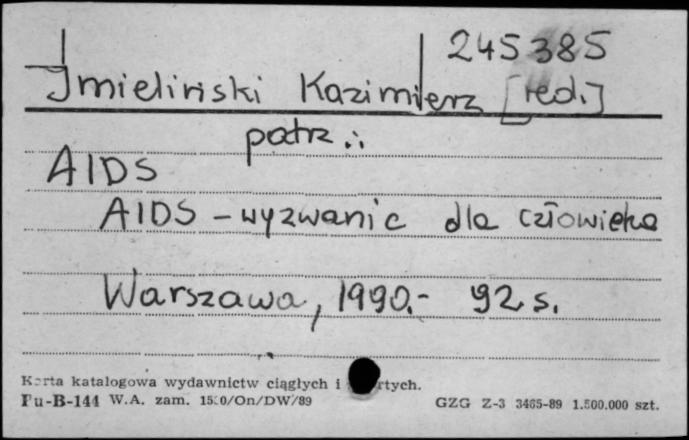 245385
Imieliński Kazimierz [red.]
patrz:
AIDS
AIDS - wyzwanie dla człowieka
Warszawa, 1990.- 92 s.
Karta katalogowa wydawnictw ciągłych i
Pu-B-144 W.A. zam. /On/DW/89
GZG Z-3 3465-89 1.500.000 szt.